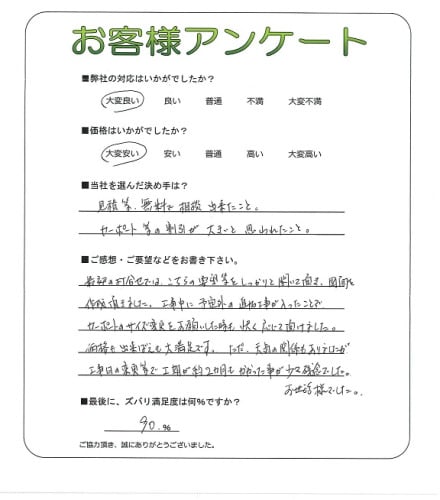 お客様アンケート
■弊社の対応はいかがでしたか?
大変良い 良い 普通 不満 大変不満
■価格はいかがでしたか?
大変安い 安い 普通 高い 大変高い
■当社を選んだ決め手は?
見積等、無料で相談出来たこと。
カーポート等の割引が大きいと思われたこと。
■ご感想・ご要望などをお書き下さい。
最初の打合せでは、こちらの要望等をしっかりと聞いて頂き、図面を
作成頂きました。工事中に予定外の追加工事が入ったことで
カーポートのサイズ変更をお願いした時も快く応じて頂けました。
価格も出来ばえも大満足です。ただ、天気の関係もありましたが
工事日の変更等で工期が約2カ月もかかった事が少々残念でした。
お世話様でした。
■最後に、ズバリ満足度は何%ですか?
90.%
ご協力頂き、誠にありがとうございました。